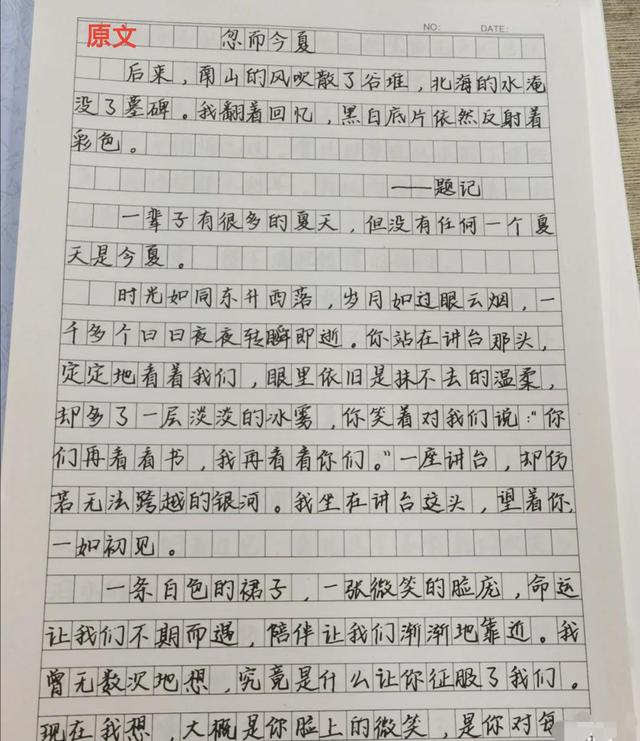 NO:
DATE:
原文
忽而今夏
后来，南山的风吹散了谷堆，北海的水淹
没了墓碑。我翻着回忆，黑白底片依然反射着
彩色。
——题记
一辈子有很多的夏天，但没有任何一个夏
天是今夏。
时光如同东升西落，岁月如过眼云烟，一
千多个日日夜夜转瞬即逝。你站在讲台那头，
定定地看着我们，眼里依旧是抹不去的温柔，
却多了一层淡淡的冰雾，你笑着对我们说：“你
们再看看书，我再看看你们。”一座讲台，却仿
若无法跨越的银河。我坐在讲台这头，望着你，
一如初见。
一条白色的裙子，一张微笑的脸庞，命运
让我们不期而遇，陪伴让我们渐渐地靠近。我
曾无数次地想，究竟是什么让你征服了我们。
现在我想，大概是你脸上的微笑，是你对每